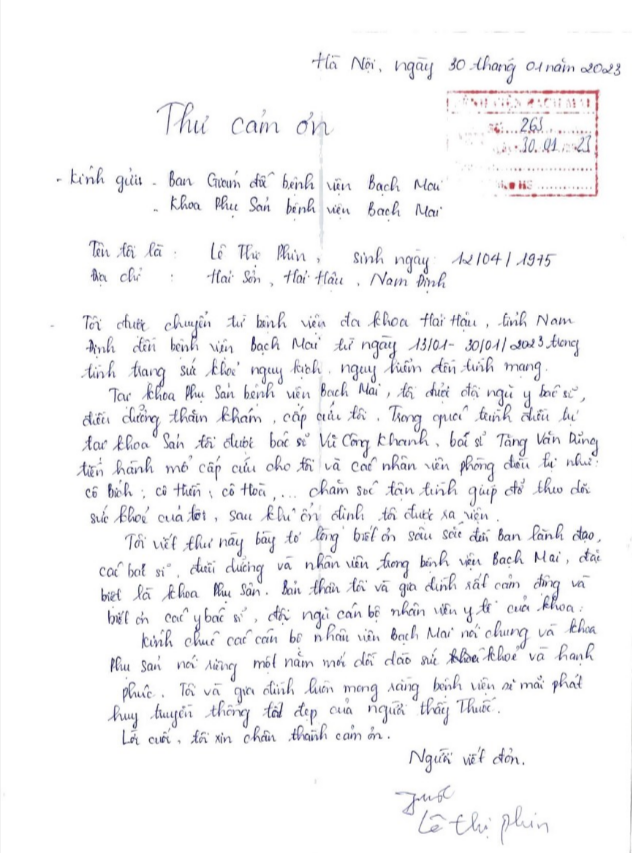 Hà Nội, ngày 30 tháng 01 năm 2023
Thư cảm ơn
BỆNH VIỆN BẠCH MAI
263
30.01.23
- Kính gửi - Ban Giám đốc bệnh viện Bạch Mai
- Khoa Phụ Sản bệnh viện Bạch Mai
Tên tôi là : Lê Thị Phin, sinh ngày 12/04/1975
Địa chỉ : Hải Sơn, Hải Hậu, Nam Định
- Tôi được chuyển từ bệnh viện đa khoa Hải Hậu, tỉnh Nam
Định đến bệnh viện Bạch Mai từ ngày 13/01- 30/01/2023 trong
tình trạng sức khoẻ nguy kịch, nguy hiểm đến tính mạng.
Tại khoa Phụ Sản bệnh viện Bạch Mai, tôi được đội ngũ y bác sĩ,
điều dưỡng thăm khám, cấp cứu tôi. Trong quá trình điều trị
tại khoa Sản tôi được bác sĩ Vũ Công Khanh, bác sĩ Tăng Văn Dũng
tiến hành mổ cấp cứu cho tôi và các nhân viên phòng điều trị như:
cô Bích, cô Hiền, cô Hoà,... chăm sóc tận tình giúp đỡ theo dõi
sức khoẻ của tôi, sau khi ổn định tôi được xa viện.
Tôi viết thư này bày tỏ lòng biết ơn sâu sắc đối Ban lãnh đạo,
các bác sĩ, dưỡng và nhân viên trong bệnh viện Bạch Mai, đặc
biệt là khoa Phụ Sản. Bản thân tôi và gia đình rất cảm động và
biết ơn các y bác sĩ, đội ngũ cán bộ nhân viên y tế của khoa.
Kính chúc các cán bộ nhân viên Bạch Mai nói chung và khoa
Phụ sản nói riêng một năm mới dồi dào sức khoẻ và hạnh
phúc. Tôi và gia đình luôn mong rằng bệnh viện sẽ mãi phát
huy truyền thống tốt đẹp của người thầy Thuốc.
Lời cuối, tôi xin chân thành cảm ơn.
Người viết đơn.
Lê thị phin